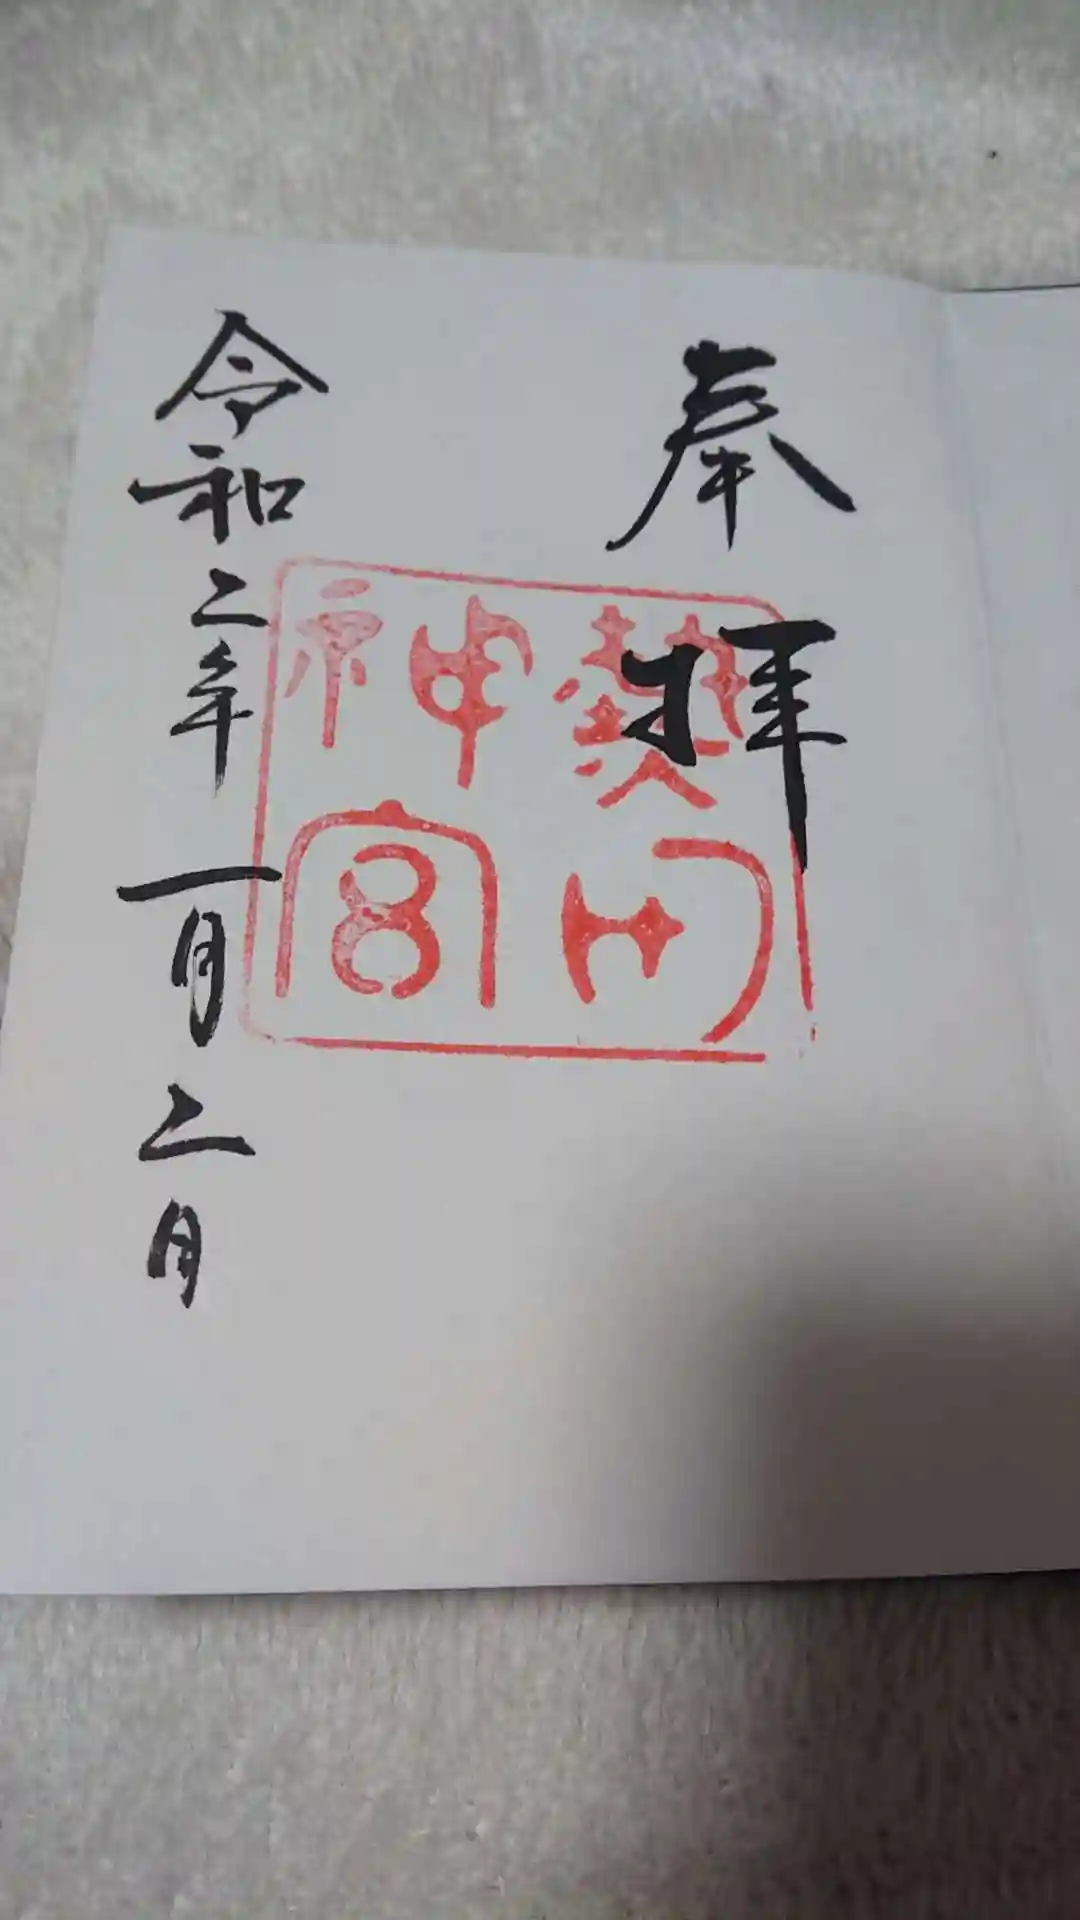 奉拝
熱田神宮
令和二年一月二日